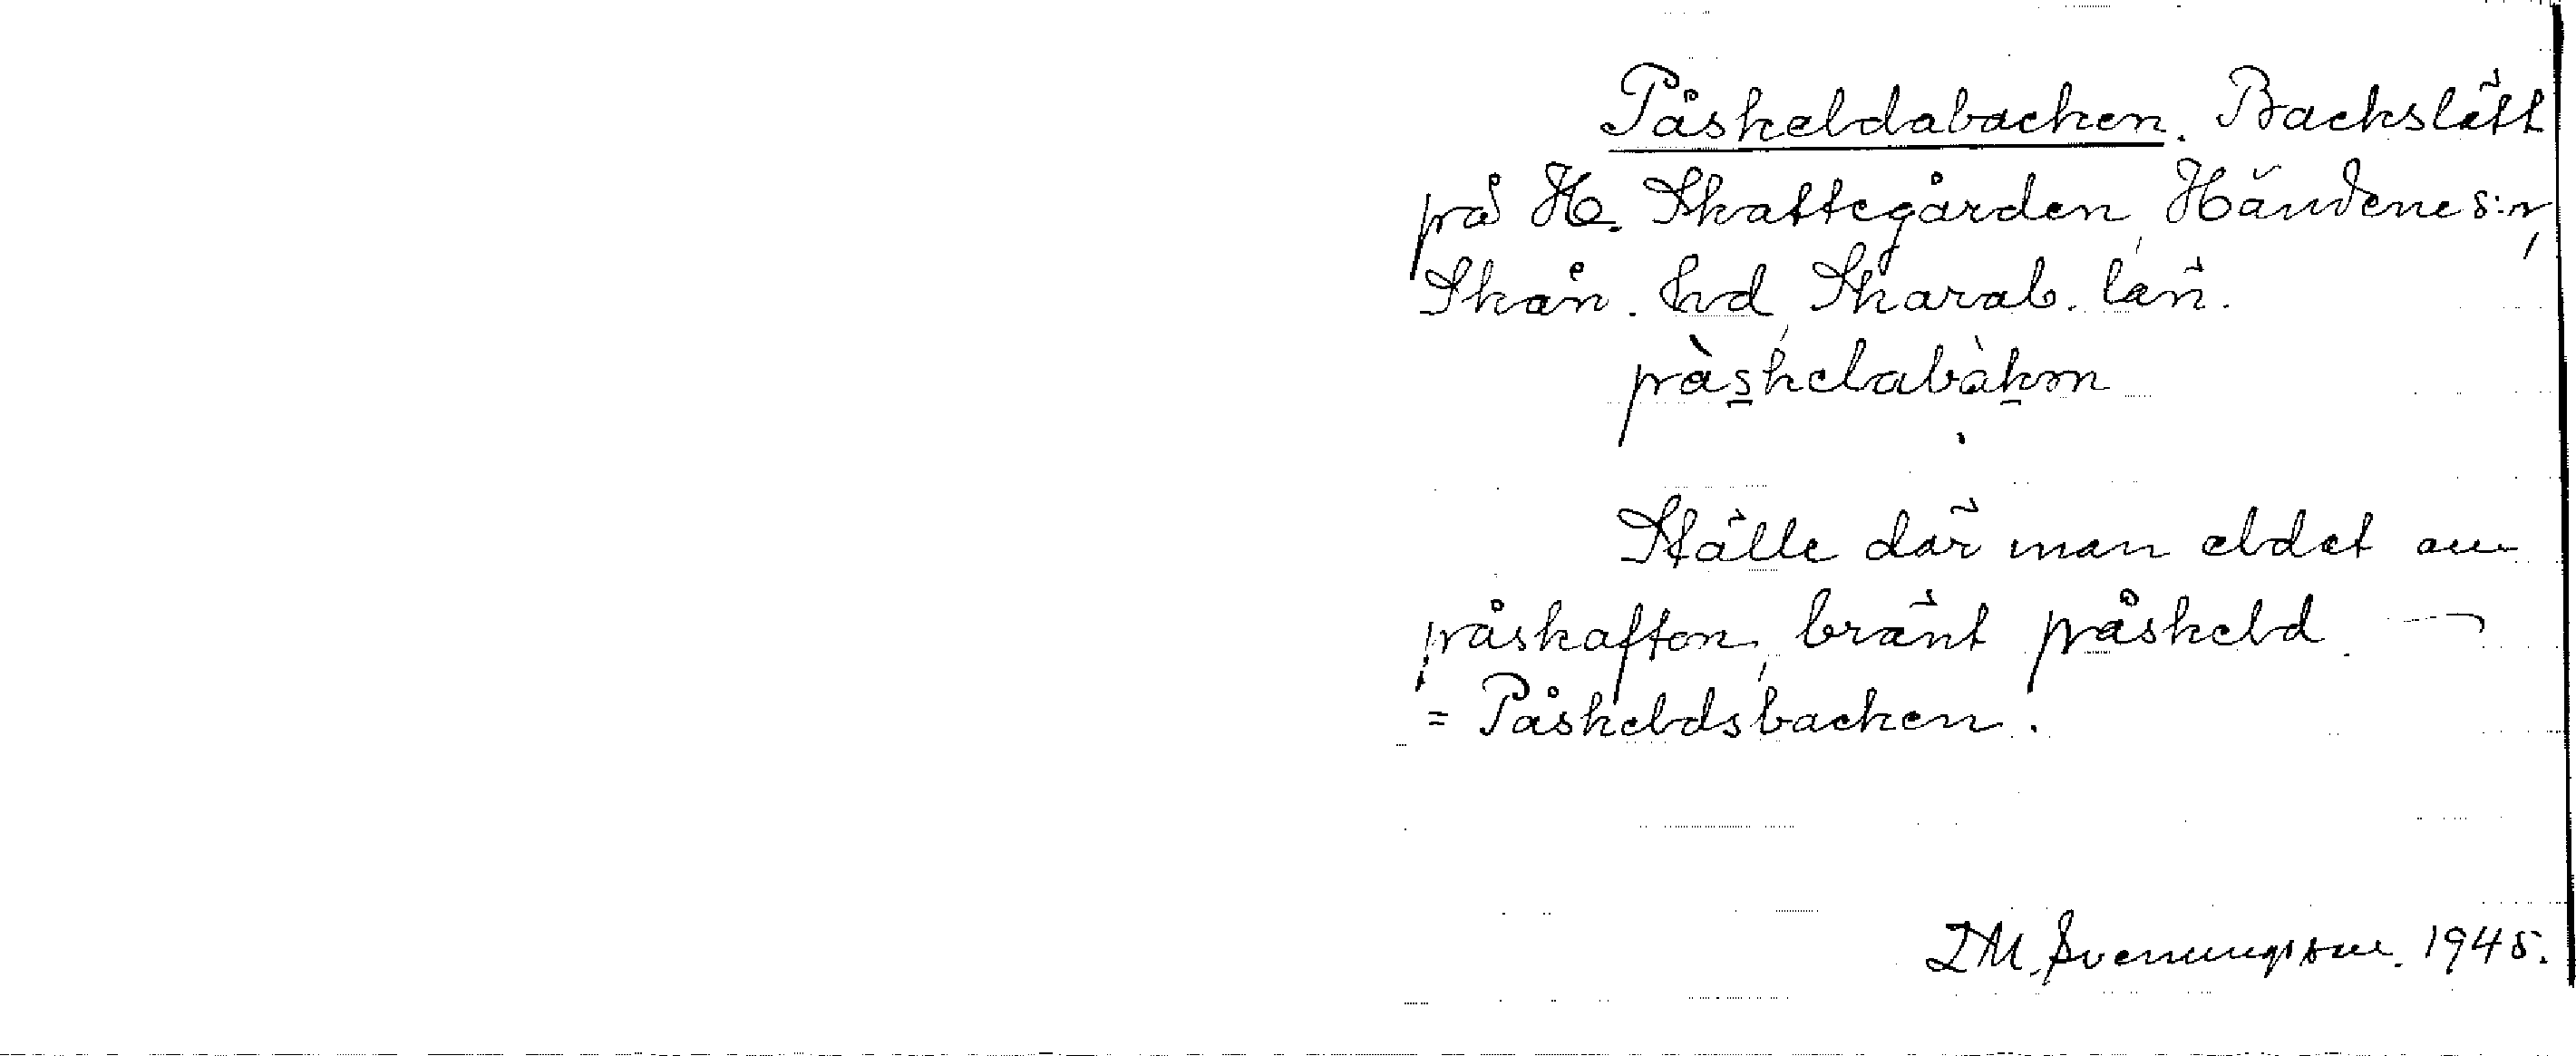 Påskeldabacken. Backslätt
på H. Skattegården, Händene s:n,
Skån. hd, Skarab. län.
pàskelabàkɷn
Ställe där man eldat om
påskafton, bränt påskeld. —
= Påskeldsbacken.
Svenungsson. 1945.